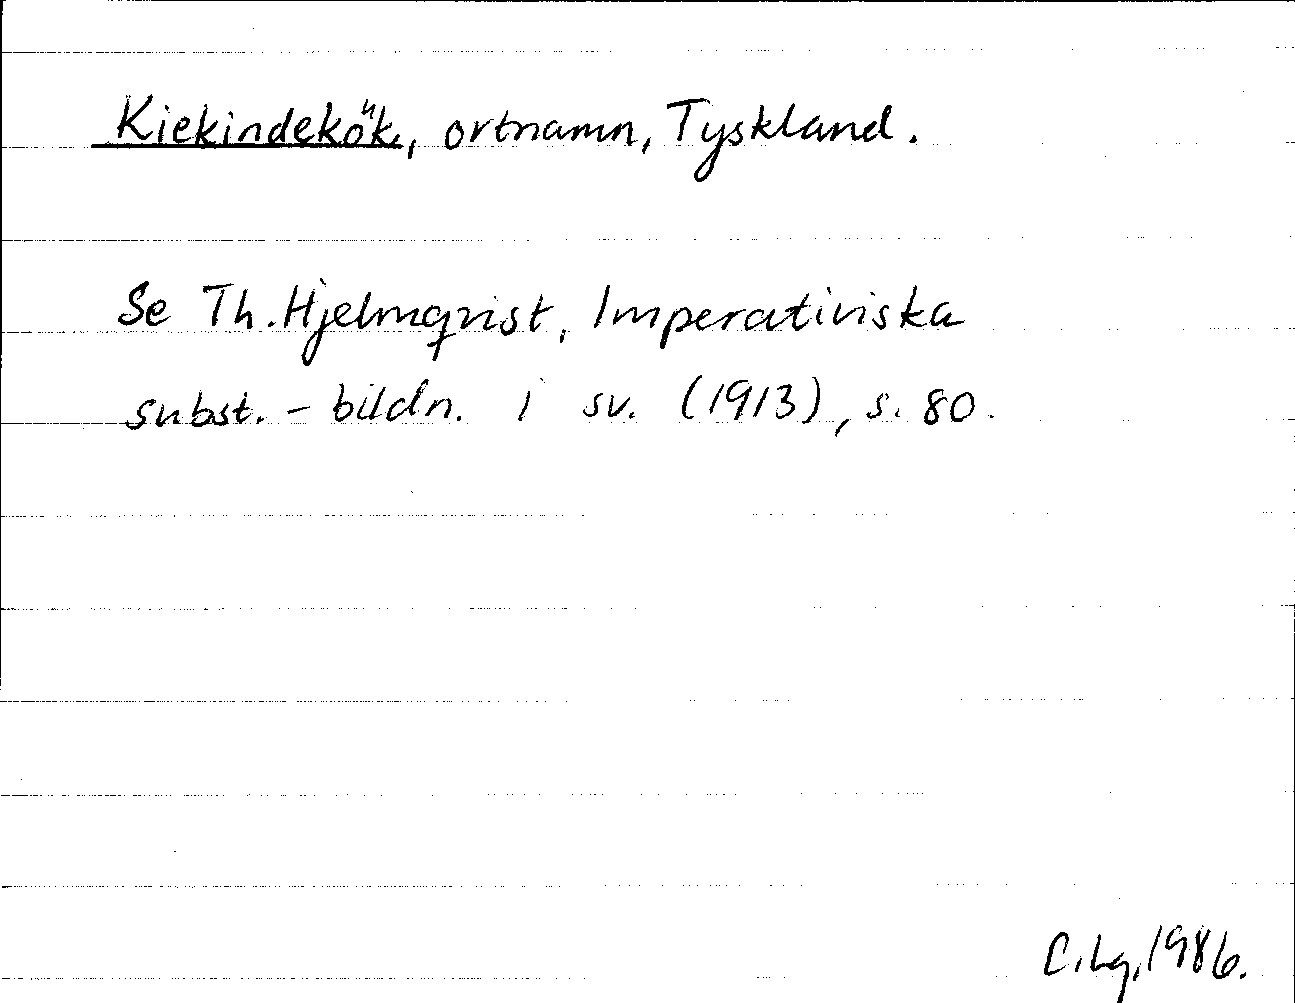 Kiekindekök, ortnamn, Tyskland.
Se Th. Hjelmqvist, Imperativiska
subst. - bildn. i sv. (1913), s. 80.
C. Lg. 1986.